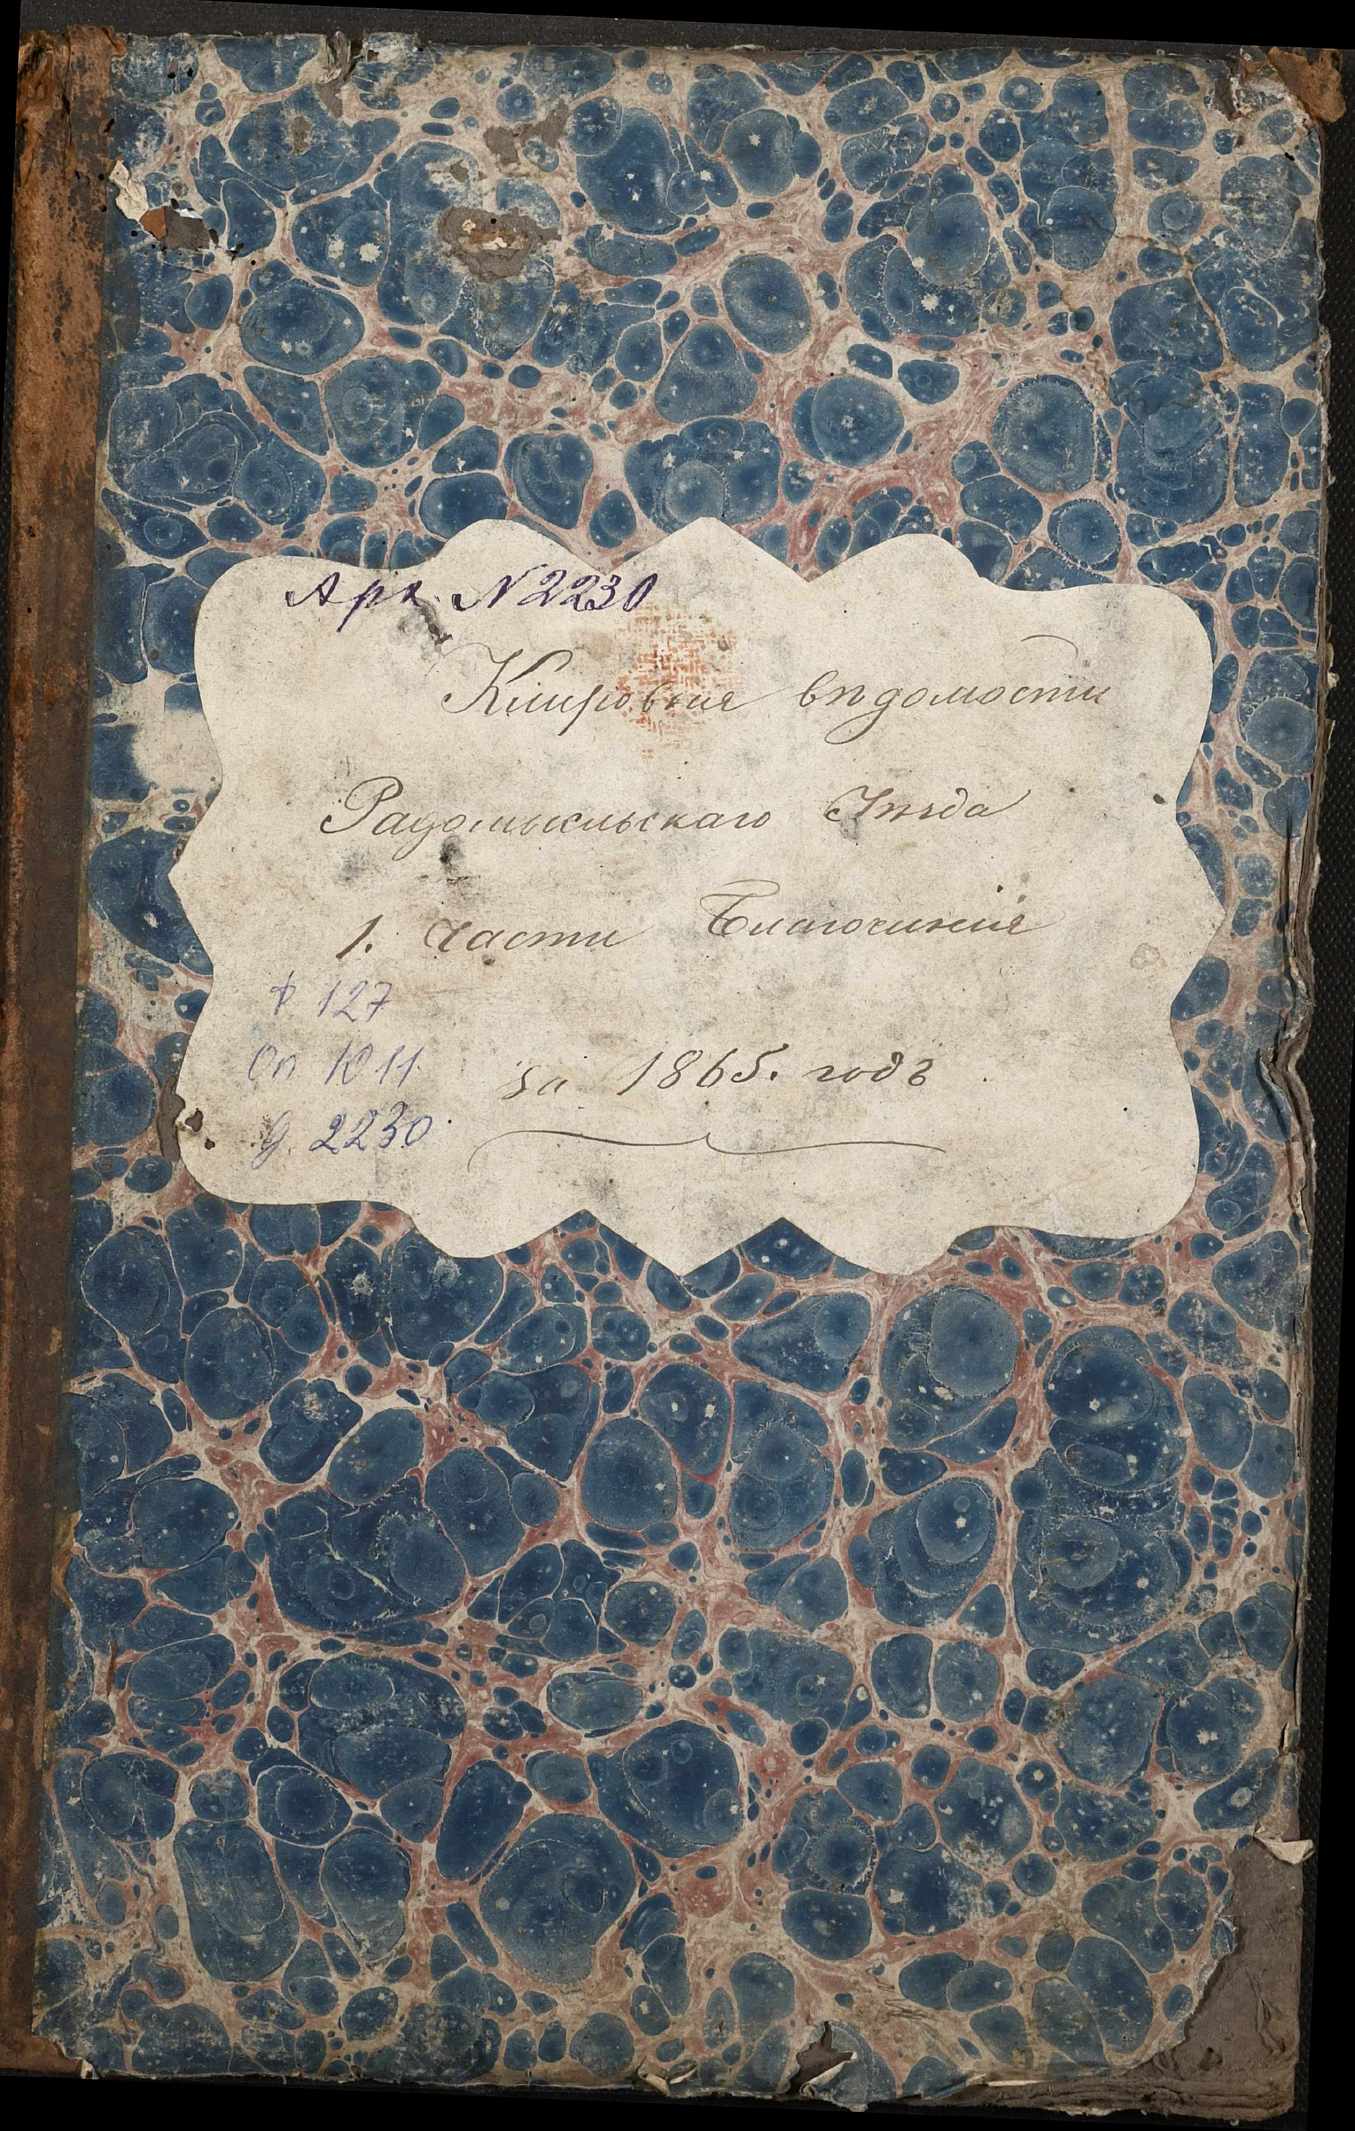 Арх. N 2230
Клировыя вѣдомости
Радомысльскаго Уѣзда
1. части Благочинія
ф. 127
Оп. 1011.
д. 2230.
за 1865. годъ